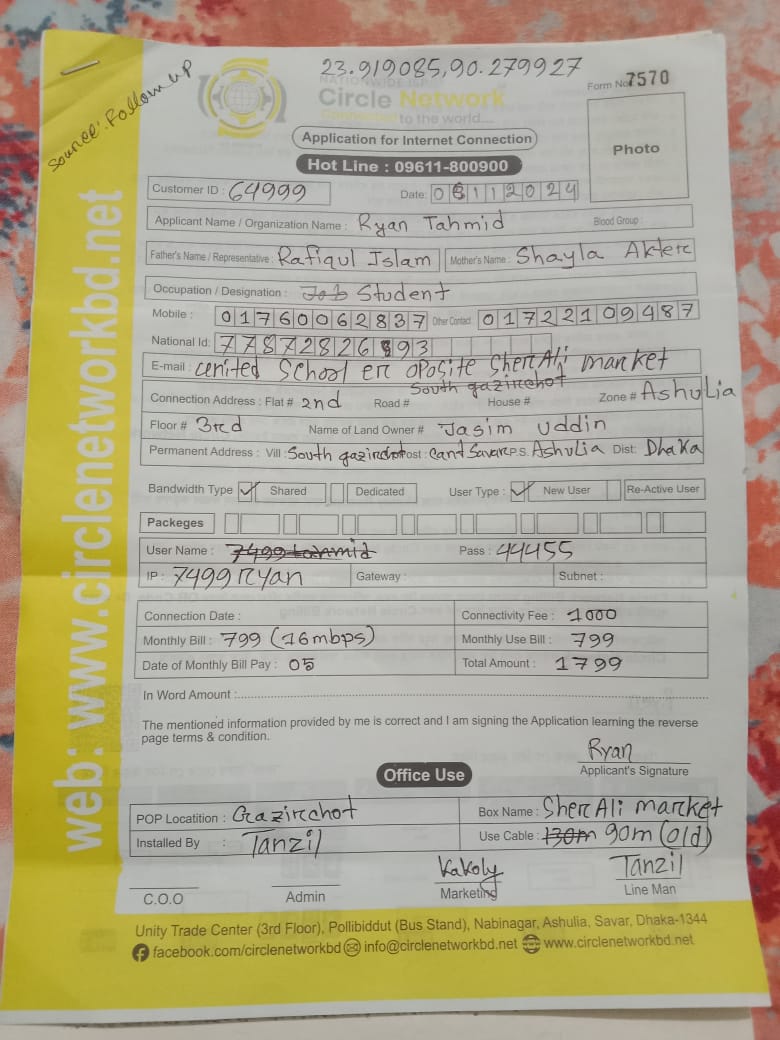 Source: Follow up
23.919085,90.279927
NATIONWIDE ISP
Circle Network
Connected to the world...
Form No 7570
Photo
Application for Internet Connection
Hot Line : 09611-800900
Customer ID : 64999 Date: 06112024
Applicant Name / Organization Name : Ryan Tahmid Blood Group :
Father's Name / Representative : Rafiqul Islam Mother's Name : Shayla Akter
Occupation / Designation : Job Student
Mobile : 01760062837 Other Contact : 01722109487
National Id: 7787282693
E-mail : United School er oposite Sher Ali market
South gazirchot
Connection Address : Flat # 2nd Road # House # Zone # Ashulia
Floor # 3rd Name of Land Owner # Jasim Uddin
Permanent Address : Vill : South gazirchot Post : Cant Savar P.S. Ashulia Dist: Dhaka
Bandwidth Type ✓ Shared Dedicated User Type : ✓ New User Re-Active User
Packeges
User Name : 7499 tahmid Pass : 44455
IP : 7499 Ryan Gateway : Subnet :
Connection Date : Connectivity Fee : 1000
Monthly Bill : 799 (16mbps) Monthly Use Bill : 799
Date of Monthly Bill Pay : 05 Total Amount : 1799
In Word Amount :
The mentioned information provided by me is correct and I am signing the Application learning the reverse
page terms & condition.
Ryan
Applicant's Signature
Office Use
POP Locatition : Gazirchot Box Name : Sher Ali market
Installed By : Tanzil Use Cable : 130m 90m (old)
Kakoly Tanzil
C.O.O Admin Marketing Line Man
Unity Trade Center (3rd Floor), Pollibiddut (Bus Stand), Nabinagar, Ashulia, Savar, Dhaka-1344
facebook.com/circlenetworkbd info@circlenetworkbd.net www.circlenetworkbd.net
web: www.circlenetworkbd.net